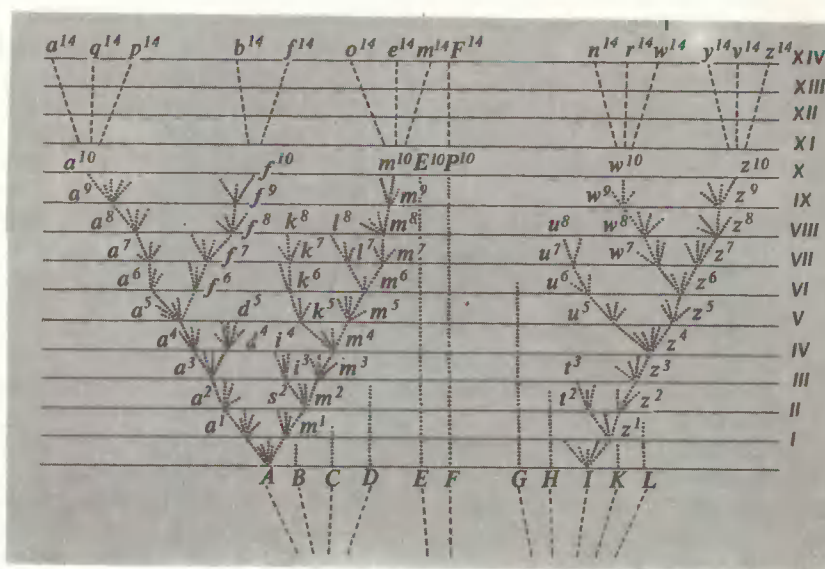 a¹⁴ q¹⁴ p¹⁴ b¹⁴ f¹⁴ o¹⁴ e¹⁴ m¹⁴ F¹⁴ n¹⁴ r¹⁴ w¹⁴ y¹⁴ v¹⁴ z¹⁴ XIV
XIII
XII
XI
a¹⁰ f¹⁰ m¹⁰ E¹⁰ P¹⁰ w¹⁰ z¹⁰ X
a⁹ f⁹ m⁹ w⁹ z⁹ IX
a⁸ f⁸ k⁸ l⁸ m⁸ u⁸ w⁸ z⁸ VIII
a⁷ f⁷ k⁷ l⁷ m⁷ u⁷ w⁷ z⁷ VII
a⁶ f⁶ k⁶ m⁶ u⁶ z⁶ VI
a⁵ d⁵ k⁵ m⁵ u⁵ z⁵ V
a⁴ d⁴ i⁴ m⁴ z⁴ IV
a³ i³ m³ t³ z³ III
a² s² m² t² z² II
a¹ m¹ z¹ I
A B C D E F G H I K L